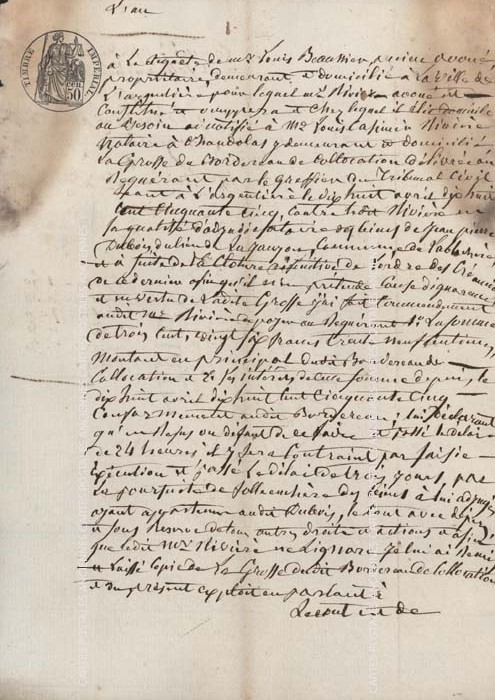 L'an
TIMBRE IMPERIAL
50
à la Requête de mr Louis Beaussier, ancien avoué,
propriétaire, demeurant et domicilié à la ville de
Largentière pour lequel me Rivière avoué est
Constitué et chez lequel il élit domicile
au besoin ai notifié à Mr Louis Casimir Rivière
Notaire à Chandolas y demeurant et domicilié
La Grosse du Bordereau de Collocation délivrée au
Requérant par le Greffier du Tribunal Civil
séant à L'argentière le dix huit avril dix huit
Cent Cinquante Cinq, Contre ledit Rivière en
sa qualité d'adjudicataire des biens de Jean pierre
Dubois, du lieu de Commune de
et à suite de la Cloture définitive de l'ordre des Créanciers
de ce dernier afin qu'il n'en prétende Cause d'ignorance
et en vertu de ladite Grosse j'ai fait Commandement
audit Mr Rivière de payer au Requérant la somme
de trois Cent vingt six francs trente neuf Centimes
montant en principal dudit Bordereau de
Collocation et les intérêts de cette somme depuis le
dix huit avril dix huit Cent Cinquante Cinq
Conformément audit Bordereau; lui déclarant
qu'en Refus ou défaut de ce faire et passé le délai
de 24 heures il y sera Contraint par saisie
Exécution et passé le délai de trois jours, par
La poursuite de folle enchère des biens à lui adjugés
ayant appartenu audit Dubois, le tout avec dépens
et sous Reserve de tous autres droits et actions et afin
que ledit Mr Rivière ne L'ignore Je lui ai Remis
et laissé Copie de La Grosse dudit Bordereau de Collocation
et du présent exploit en parlant à
Le Cout est de